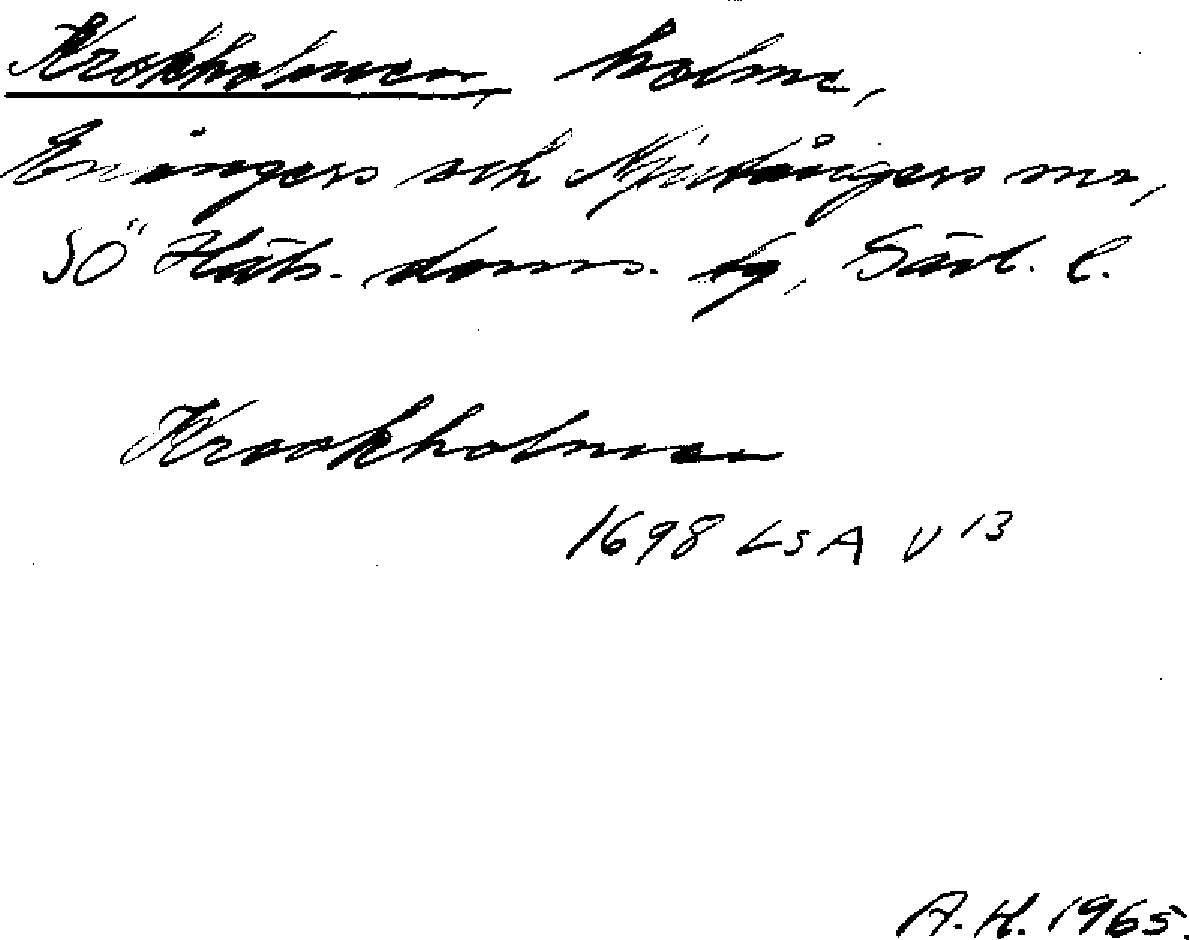 Krokholmen, holme,
Enångers och Njutångers snr,
SÖ Häls. doms. tg, Gävl. l.
Krookholmen
1698 LSA V 13
A.H. 1965.